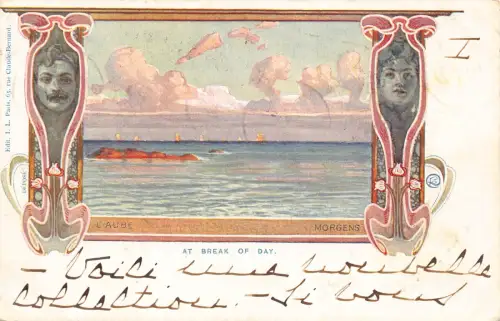 I
Edit. I. L. Paris, 65, rue Claude-Bernard.
DÉPOSÉ
L'AUBE MORGENS
AT BREAK OF DAY.
- Voici une nouvelle
collection. - Si vous